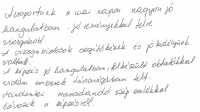 Csoportunk a mai napon nagyon jó
hangulatban, jó reményekkel telve
vizsgázott.
A vizsgáztatóink segítőkészek és jó kedélyűek
voltak.
A képzés jó hangulatban, felkészült oktatókkal
vidám emberek társaságában telt.
Mindenki maradandó szép emlékkel
távozik a képzésről.